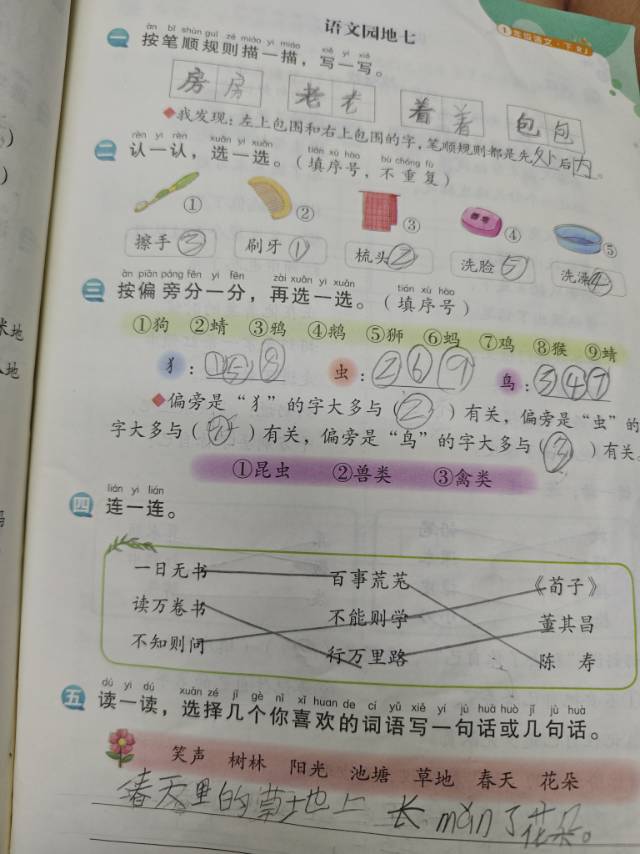 语文园地七
1年级语文·下 RJ
àn bǐ shùn guī zé miáo yi miáo xiě yi xiě
一 按笔顺规则描一描，写一写。
房 房 老 老 着 着 包 包
◆我发现：左上包围和右上包围的字，笔顺规则都是先外后内。
rèn yi rèn xuǎn yi xuǎn tián xù hào bù chóng fù
二 认一认，选一选。（填序号，不重复）
① ② ③ ④ ⑤
擦手③ 刷牙① 梳头② 洗脸⑤ 洗澡④
àn piān páng fēn yi fēn zài xuǎn yi xuǎn tián xù hào
三 按偏旁分一分，再选一选。（填序号）
①狗 ②蜻 ③鸦 ④鹅 ⑤狮 ⑥蚂 ⑦鸡 ⑧猴 ⑨蜻
犭：①⑤⑧ 虫：②⑥⑨ 鸟：③④⑦
◆偏旁是“犭”的字大多与（②）有关，偏旁是“虫”的
字大多与（ ）有关，偏旁是“鸟”的字大多与（③）有关。
①昆虫 ②兽类 ③禽类
lián yi lián
四 连一连。
一日无书 百事荒芜 《荀子》
读万卷书 不能则学 董其昌
不知则问 行万里路 陈 寿
dú yi dú xuǎn zé jǐ gè nǐ xǐ huan de cí yǔ xiě yí jù huà huò jǐ jù huà
五 读一读，选择几个你喜欢的词语写一句话或几句话。
笑声 树林 阳光 池塘 草地 春天 花朵
春天里的草地上长mǎn了花朵。